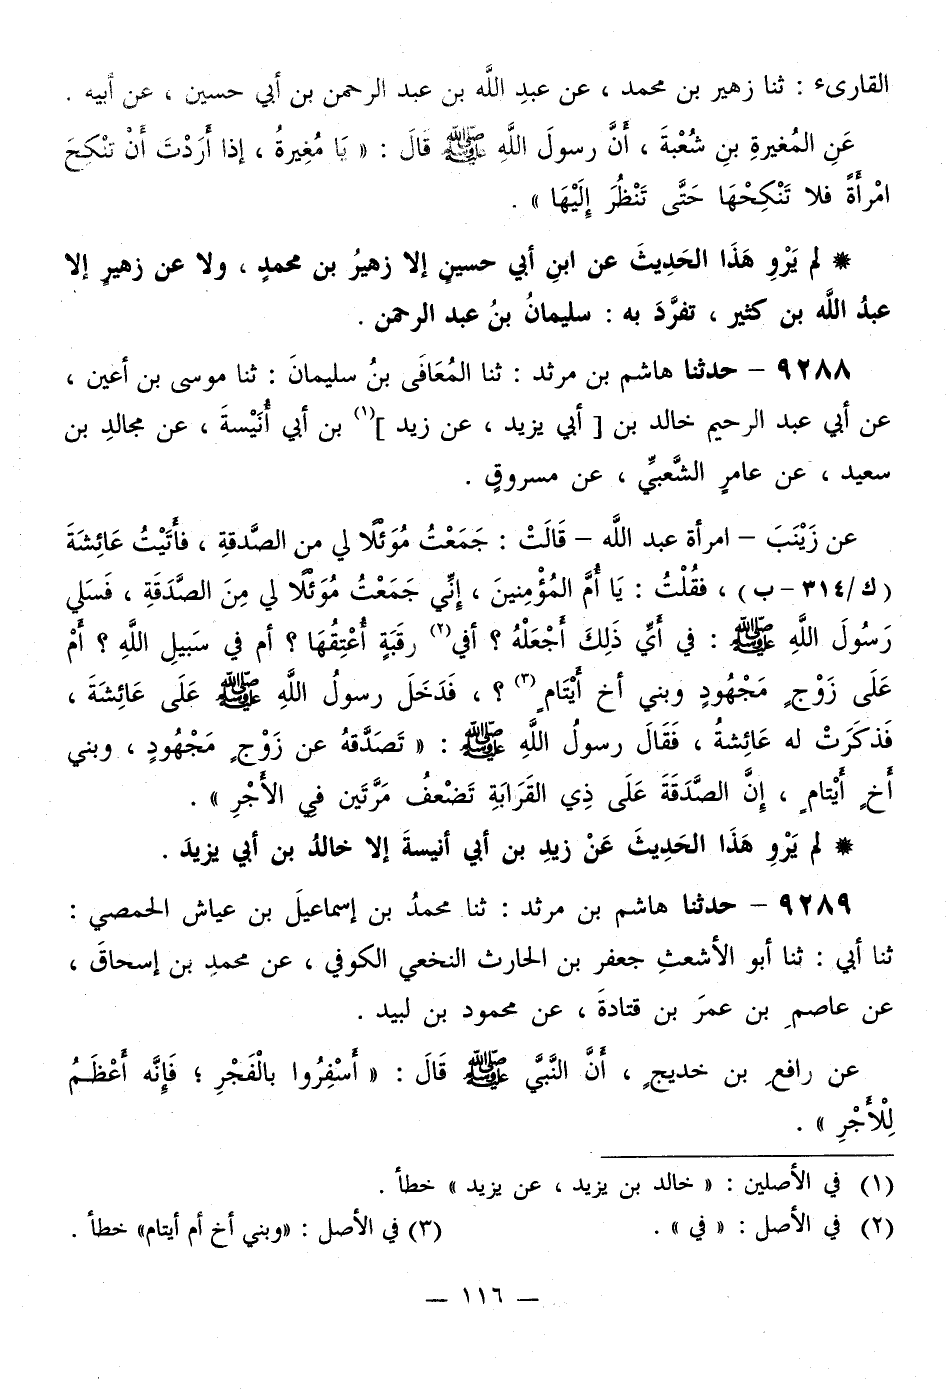 القارىء : ثنا زهير بن محمد ، عن عبدِ اللَّه بن عبد الرحمن بن أبي حسين ، عن أبيه .
عَنِ المُغيرةِ بنِ شُعْبةَ ، أَنَّ رسولَ اللَّهِ ﷺ قالَ : « يَا مُغِيرةُ ، إذا أَرَدْتَ أَنْ تنْكِحَ
امْرأَةً فلا تَنْكِحْهَا حَتَّى تَنْظُرَ إِلَيْهَا » .
* لم يَرْوِ هَذَا الحَدِيثَ عن ابنِ أبي حسينٍ إلا زهيرُ بن محمدٍ ، ولا عن زهيرٍ إلا
عبدُ اللَّه بن كثير ، تفرَّدَ به : سليمانُ بنُ عبد الرحمن .
٩٢٨٨ – حدثنا هاشم بن مرثد : ثنا المُعَافَى بنُ سليمانَ : ثنا موسى بن أعين ،
عن أبي عبد الرحيم خالد بن [ أبي يزيد ، عن زيد ](١) بن أبي أُنَيْسةَ ، عن مجالدِ بن
سعيد ، عن عامرٍ الشَّعبيِّ ، عن مسروقٍ .
عن زَيْنَبَ – امرأة عبد اللَّه – قَالَتْ : جَمَعْتُ مُوَئَلًا لي من الصَّدقةِ ، فأَتَيْتُ عَائِشَةَ
( ك/٣١٤ – ب ) ، فقُلْتُ : يَا أُمَّ المُؤْمِنينَ ، إنِّي جَمَعْتُ مُوَئَلًا لي مِنَ الصَّدَقَةِ ، فَسَلي
رَسُولَ اللَّهِ ﷺ : في أَيِّ ذَلِكَ أَجْعَلْهُ ؟ أفي(٢) رقبَةٍ أُعْتِقُهَا ؟ أم في سَبِيلِ اللَّهِ ؟ أَمْ
عَلَى زَوْجٍ مَجْهُودٍ وبني أخ أَيْتَامٍ(٣) ؟ ، فَدَخَلَ رسولُ اللَّهِ ﷺ عَلَى عَائِشَةَ ،
فَذكَرَتْ له عَائِشةُ ، فَقَالَ رسولُ اللَّهِ ﷺ : « تَصَدَّقهُ عن زَوْجٍ مَجْهُودٍ ، وبني
أَخٍ أَيْتامٍ ، إنَّ الصَّدَقَةَ عَلَى ذِي القَرَابَةِ تَضْعفُ مَرَّتَين فِي الأَجْرِ » .
* لم يَرْوِ هَذَا الحَدِيثَ عَنْ زيدِ بن أبي أنيسةَ إلا خالدُ بن أبي يزيدَ .
٩٢٨٩ – حدثنا هاشم بن مرثد : ثنا محمدُ بن إسماعيلَ بن عياش الحمصي :
ثنا أبي : ثنا أبو الأشعثِ جعفر بن الحارث النخعي الكوفي ، عن محمدِ بن إسحاقَ ،
عن عاصمِ بن عمرَ بن قتادةَ ، عن محمود بن لبيد .
عن رافعِ بن خديجٍ ، أَنَّ النَّبيَّ ﷺ قَالَ : « أَسْفِرُوا بالْفَجْرِ ؛ فَإِنَّه أَعْظَمُ
لِلْأَجْرِ » .
(١) في الأصلين : « خالد بن يزيد ، عن يزيد » خطأ .
(٢) في الأصل : « في » . (٣) في الأصل : «وبني أخ أم أيتام» خطأ .
– ١١٦ –